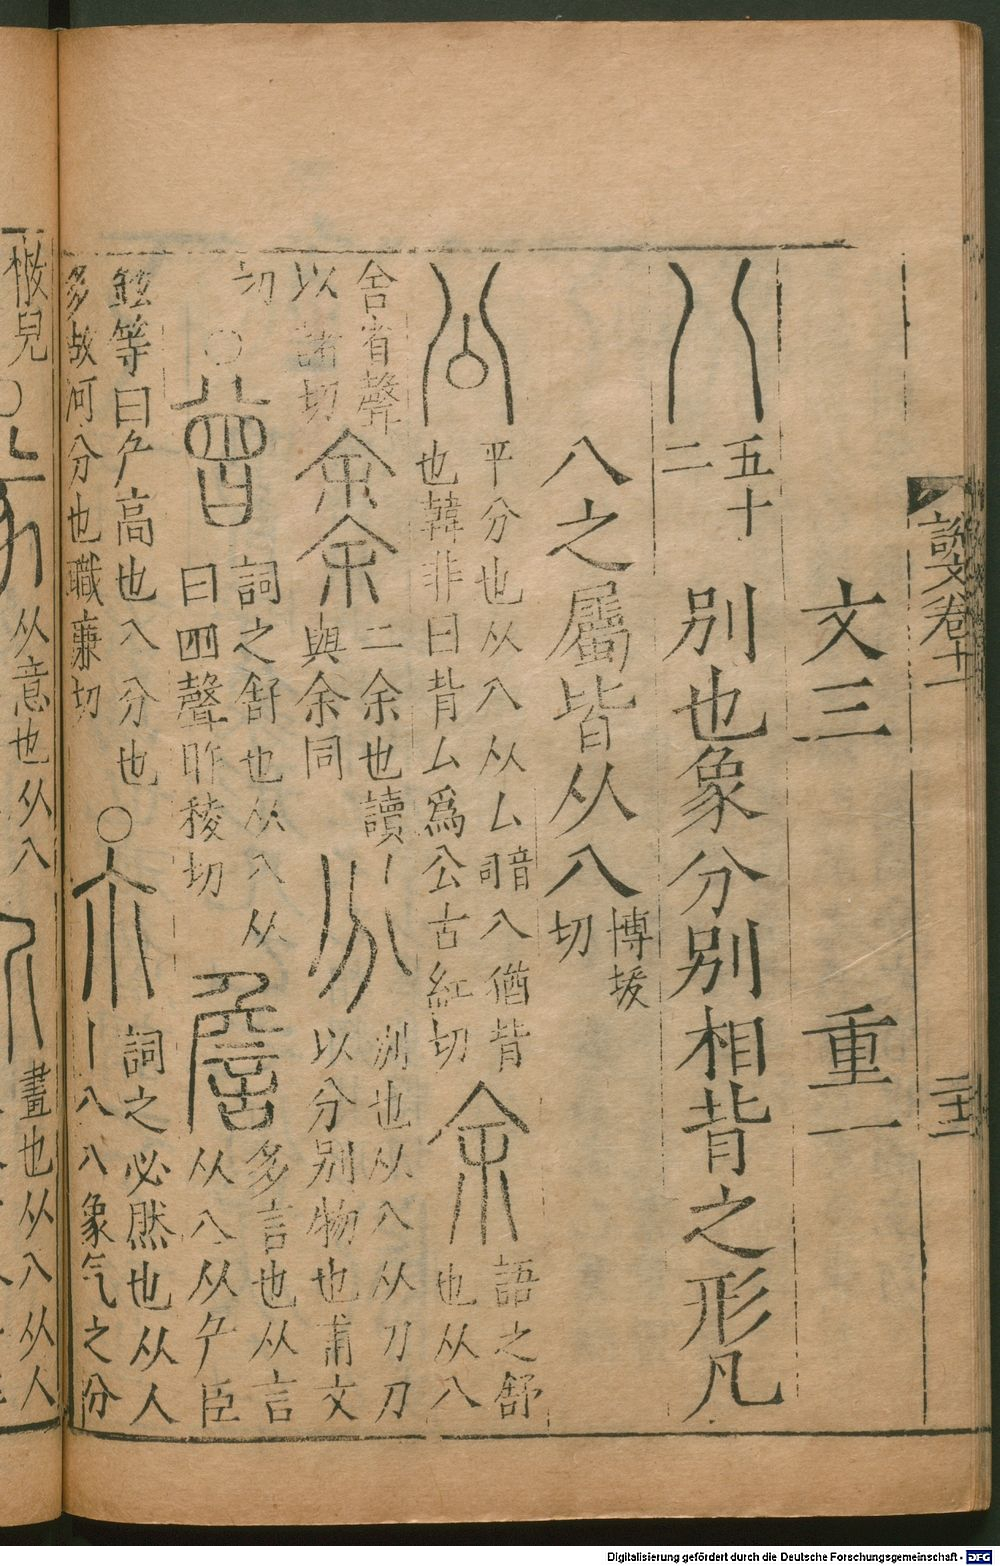 說文卷十一
文三 重一
八 五十二 別也象分別相背之形凡
八之屬皆从八 博拔切
公 平分也从八从厶音司八猶背
也韓非曰背厶爲公古紅切 余 語之舒也从八
舍省聲以諸切 余余 二余也讀與余同 分 別也从八从刀刀以分別物也甫文
切 ○ 曾 詞之舒也从八从曰四聲昨稜切 詹 多言也从言从八从厃臣
鉉等曰厃高也八分也多故河分也職廉切 ○ 尒 詞之必然也从人丨八八象气之分
兒 ○ 㒸 从意也从八 介 畫也从八从人